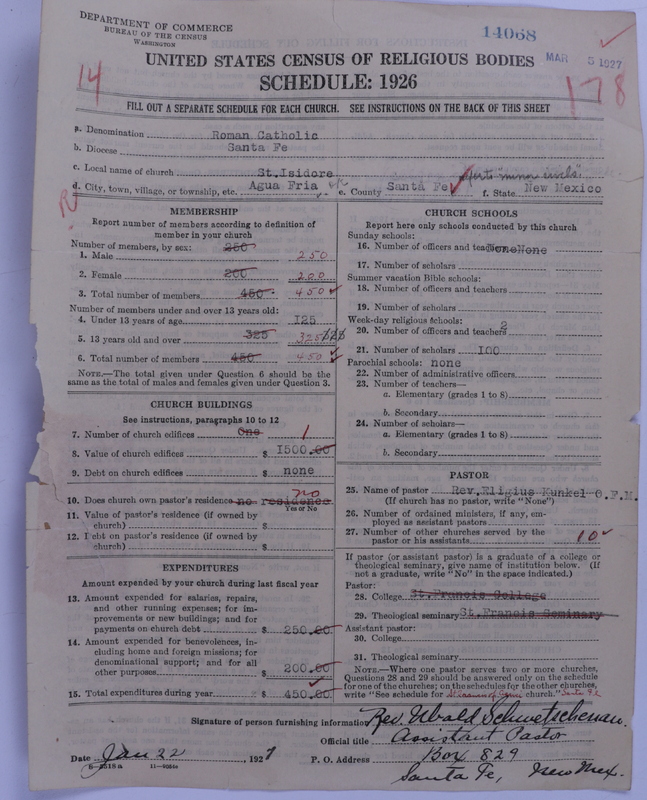 DEPARTMENT OF COMMERCE
BUREAU OF THE CENSUS
WASHINGTON
14068
MAR 5 1927
UNITED STATES CENSUS OF RELIGIOUS BODIES
SCHEDULE: 1926
14
178
FILL OUT A SEPARATE SCHEDULE FOR EACH CHURCH. SEE INSTRUCTIONS ON THE BACK OF THIS SHEET
a. Denomination Roman Catholic
b. Diocese Santa Fe
c. Local name of church St.Isidore
"minor civils"
d. City, town, village, or township, etc. Agua Fria e. County Santa Fe f. State New Mexico
R
MEMBERSHIP
Report number of members according to definition of
member in your church
Number of members, by sex:
1. Male 250 250
2. Female 200 200
3. Total number of members 450 450
Number of members under and over 13 years old:
4. Under 13 years of age 125
5. 13 years old and over 325 325
6. Total number of members 450 450
NOTE.—The total given under Question 6 should be the
same as the total of males and females given under Question 3.
CHURCH BUILDINGS
See instructions, paragraphs 10 to 12
7. Number of church edifices One 1
8. Value of church edifices $ 1500.00
9. Debt on church edifices $ none
10. Does church own pastor's residence no residence no
Yes or No
11. Value of pastor's residence (if owned by
church) $
12. Debt on pastor's residence (if owned by
church) $
EXPENDITURES
Amount expended by your church during last fiscal year
13. Amount expended for salaries, repairs,
and other running expenses; for im-
provements or new buildings; and for
payments on church debt $ 250.00
14. Amount expended for benevolences, in-
cluding home and foreign missions; for
denominational support; and for all
other purposes $ 200.00
15. Total expenditures during year $ 450.00
CHURCH SCHOOLS
Report here only schools conducted by this church
Sunday schools:
16. Number of officers and teachers None None
17. Number of scholars
Summer vacation Bible schools:
18. Number of officers and teachers
19. Number of scholars
Week-day religious schools:
20. Number of officers and teachers 2
21. Number of scholars 100
Parochial schools: none
22. Number of administrative officers
23. Number of teachers—
a. Elementary (grades 1 to 8)
b. Secondary
24. Number of scholars—
a. Elementary (grades 1 to 8)
b. Secondary
PASTOR
25. Name of pastor Rev.Eligius Kunkel O.F.M.
(If church has no pastor, write "None")
26. Number of ordained ministers, if any, em-
ployed as assistant pastors
27. Number of other churches served by the
pastor or his assistants 10
If pastor (or assistant pastor) is a graduate of a college or
theological seminary, give name of institution below. (If
not a graduate, write "No" in the space indicated.)
Pastor:
28. College St.Francis College
29. Theological seminary St.Francis Seminary
Assistant pastor:
30. College
31. Theological seminary
NOTE.—Where one pastor serves two or more churches,
Questions 28 and 29 should be answered only on the schedule
for one of the churches; on the schedules for the other churches,
write "See schedule for church." Santa Fe
Signature of person furnishing information Rev. Ubald
Official title Assistant Pastor
Date Jan 22 1927 P. O. Address Box 829
8-3518a
Santa Fe, New Mex.